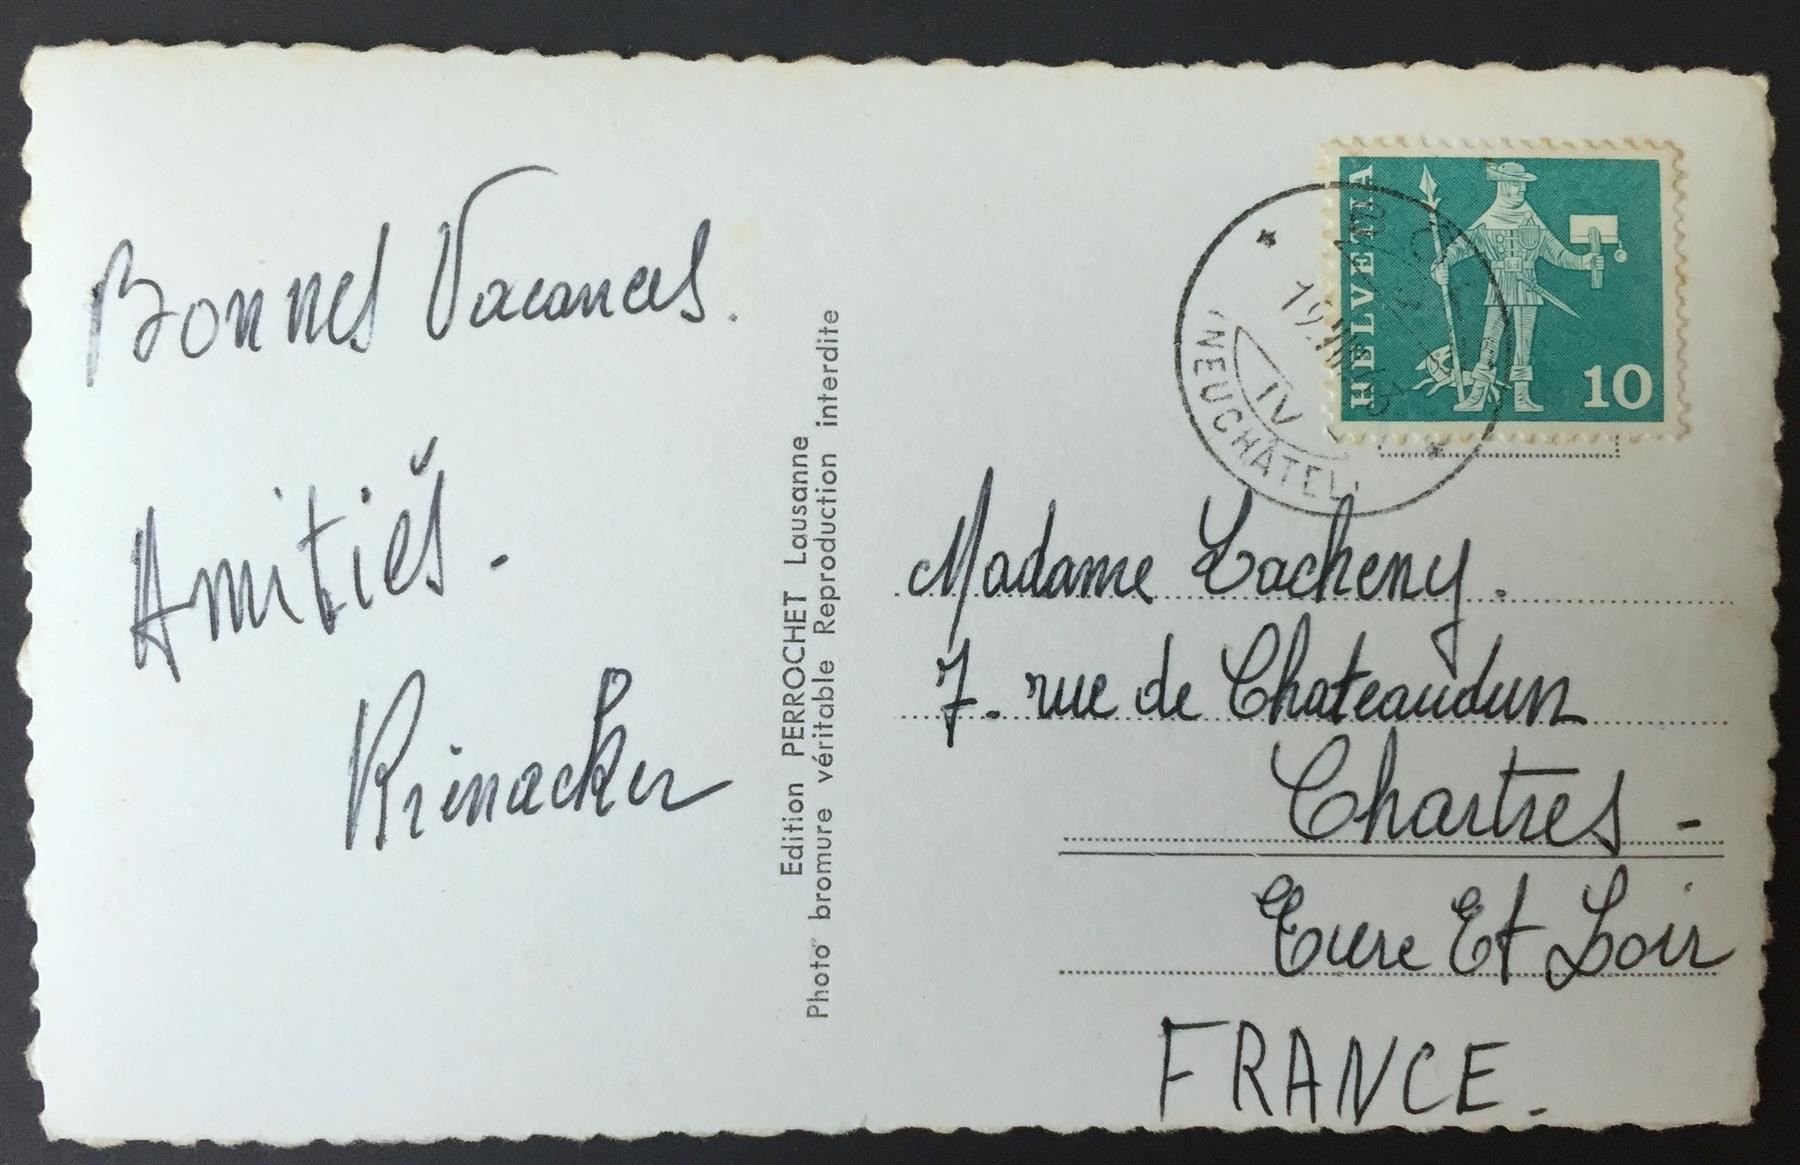 Bonnes Vacances.
Amitiés.
Rienacker
Edition PERROCHET Lausanne
Photo bromure véritable Reproduction interdite
HELVETIA
10
(NEUCHÂTEL)
IV
Madame Lacheny.
7. rue de Chateaudun
Chartres -
Eure Et Loir
FRANCE.